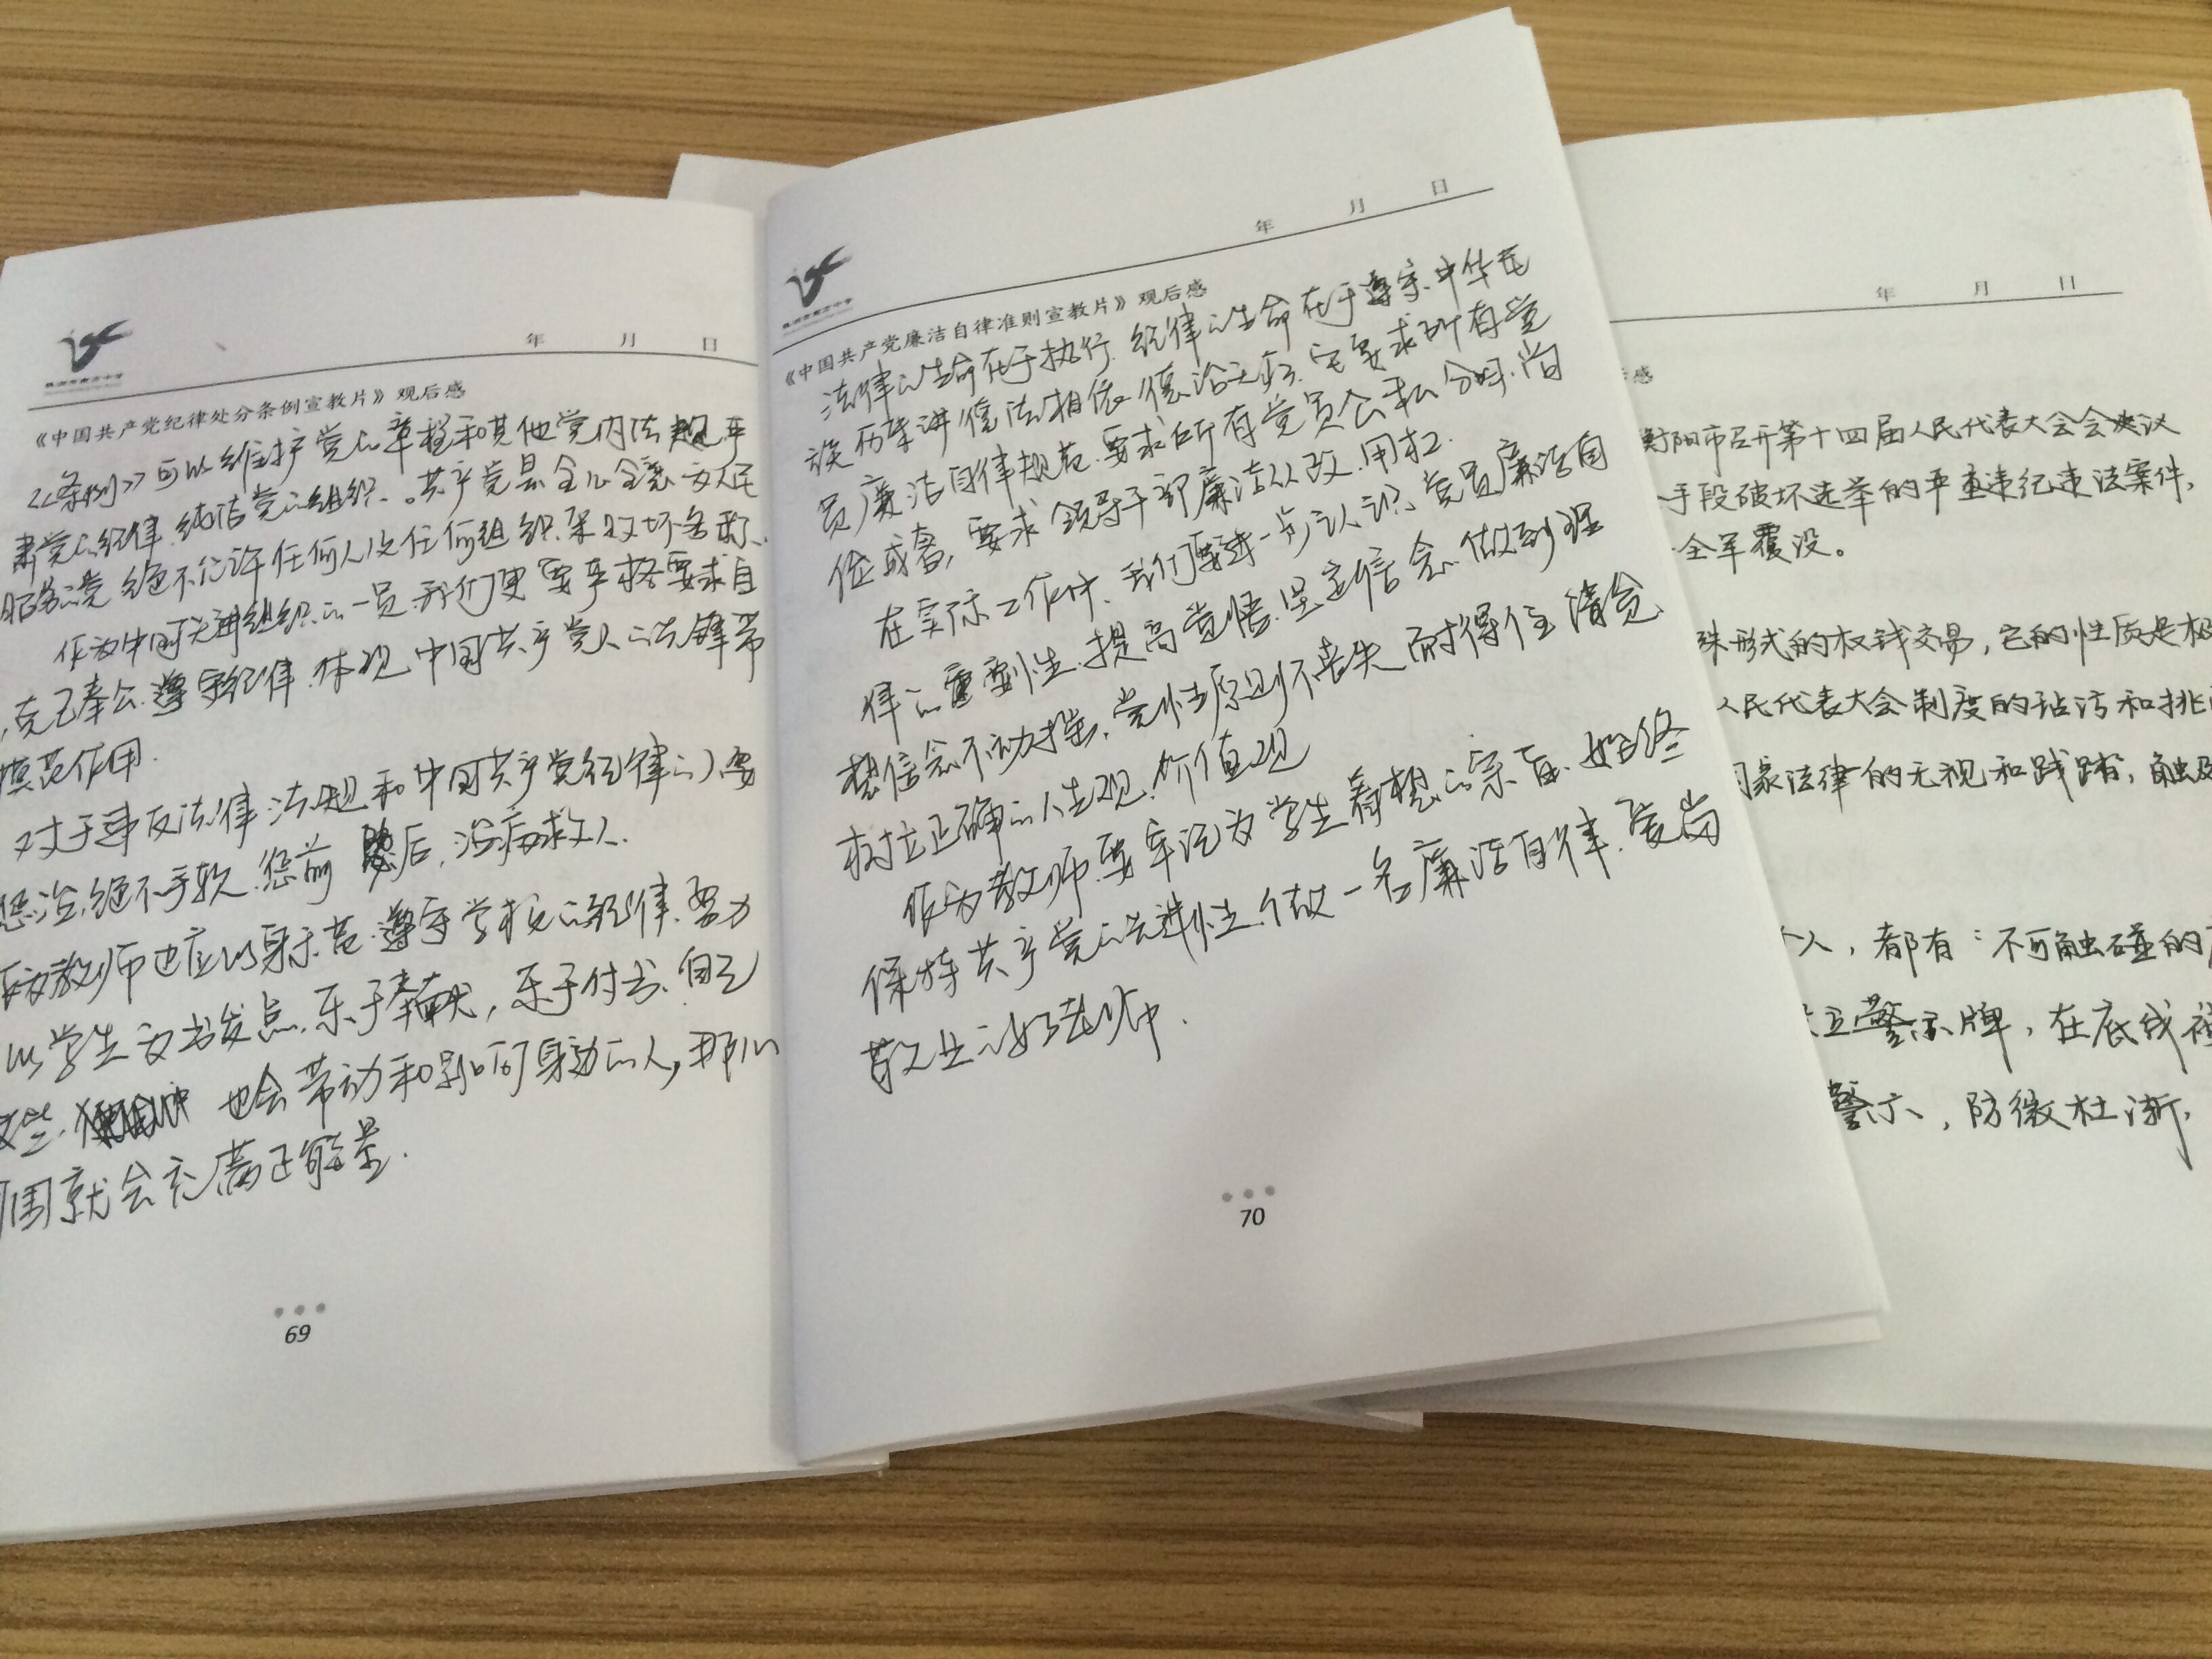 年 月 日
《中国共产党纪律处分条例宣教片》观后感
《条例》可以维护党的章程和其他党内法规,严
肃党的纪律,纯洁党的组织。共产党是全心全意为人民
服务的党,绝不允许任何人及任何组织
作为中国先进组织的一员,我们更要严格要求自
,克己奉公,遵守纪律,体现中国共产党人的先锋带
模范作用.
对于违反法律法规和中国共产党纪律的,要
惩治,绝不手软.惩前 后,治病救人.
教师也应以身示范,遵守学校的纪律,努力
以学生为出发点,乐于奉献,乐于付出.自己
这些, 也会带动和影响身边的人,那么
围就会充满正能量.
69
年 月 日
《中国共产党廉洁自律准则宣教片》观后感
法律的生命在于执行,纪律的生命在于遵守,中华民
族历来讲德法相依,德治 ,它要求所有党
员廉洁自律规范,要求所有党员公私分明,尚
俭戒奢,要求领导干部廉洁从政,用权.
在实际工作中,我们要进一步认识党员廉洁自
律的重要性,提高觉悟,坚定信念,做到理
想信念不动摇,党性原则不丧失,耐得住清贫,
树立正确的人生观,价值观
作为教师,要牢记为学生着想的宗旨,始终
保持共产党的先进性,做一名廉洁自律,爱岗
敬业的好老师.
70
年 月 日
感
衡阳市召开第十四届人民代表大会会决议
手段破坏选举的严重违纪违法案件,
全军覆没。
殊形式的权钱交易,它的性质是极
人民代表大会制度的玷污和挑
国家法律的无视和践踏,触及
个人,都有:不可触碰的
立警示牌,在底线
警示,防微杜渐,